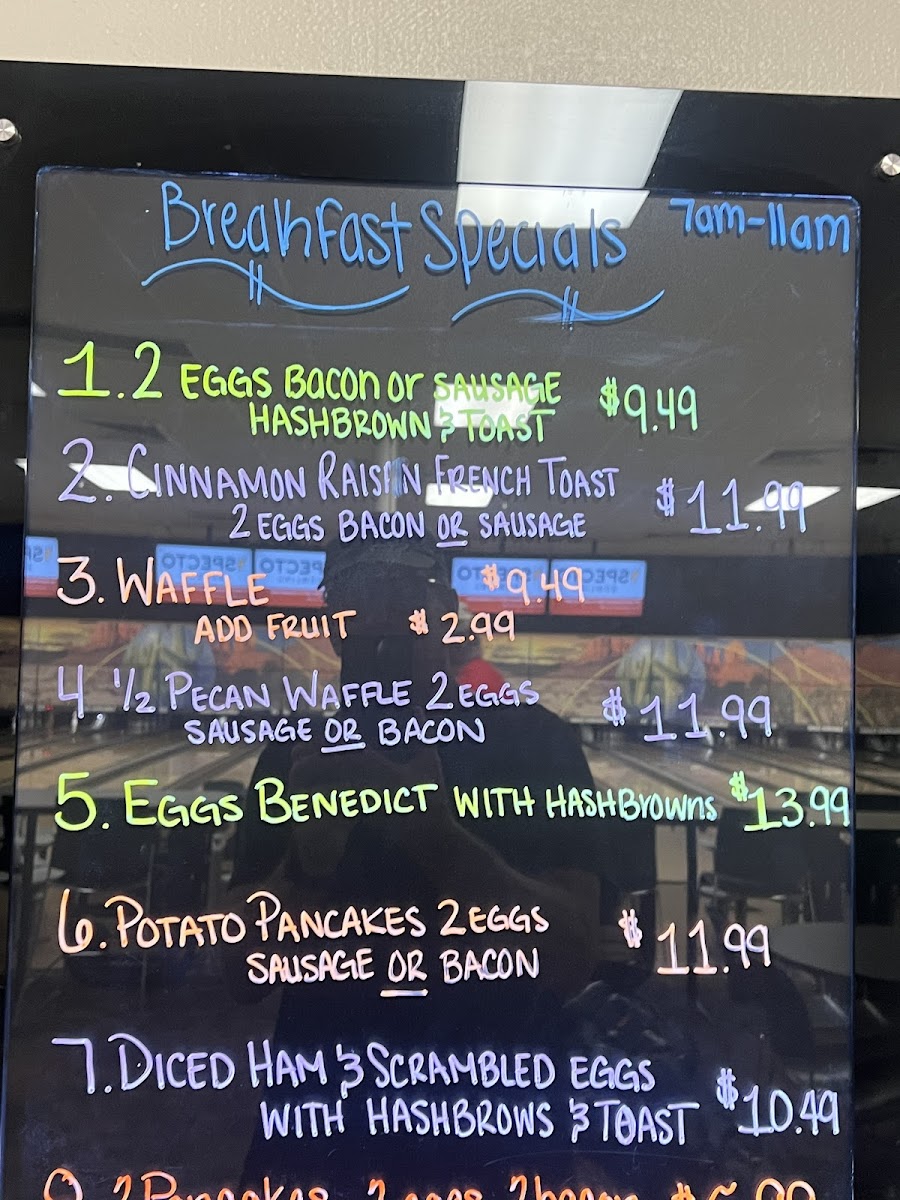 Breakfast Specials 7am-11am
1. 2 EGGS BACON or SAUSAGE $9.49
HASHBROWN & TOAST
2. CINNAMON RAISIN FRENCH TOAST $11.99
2 EGGS BACON OR SAUSAGE
3. WAFFLE $9.49
ADD FRUIT $2.99
4 1/2 PECAN WAFFLE 2 EGGS $11.99
SAUSAGE OR BACON
5. EGGS BENEDICT WITH HASHBrowns $13.99
6. POTATO PANCAKES 2 EGGS $11.99
SAUSAGE OR BACON
7. DICED HAM & SCRAMBLED EGGS $10.49
WITH HASHBROWS & TOAST
2 Pancakes 2 eggs 2 bacon